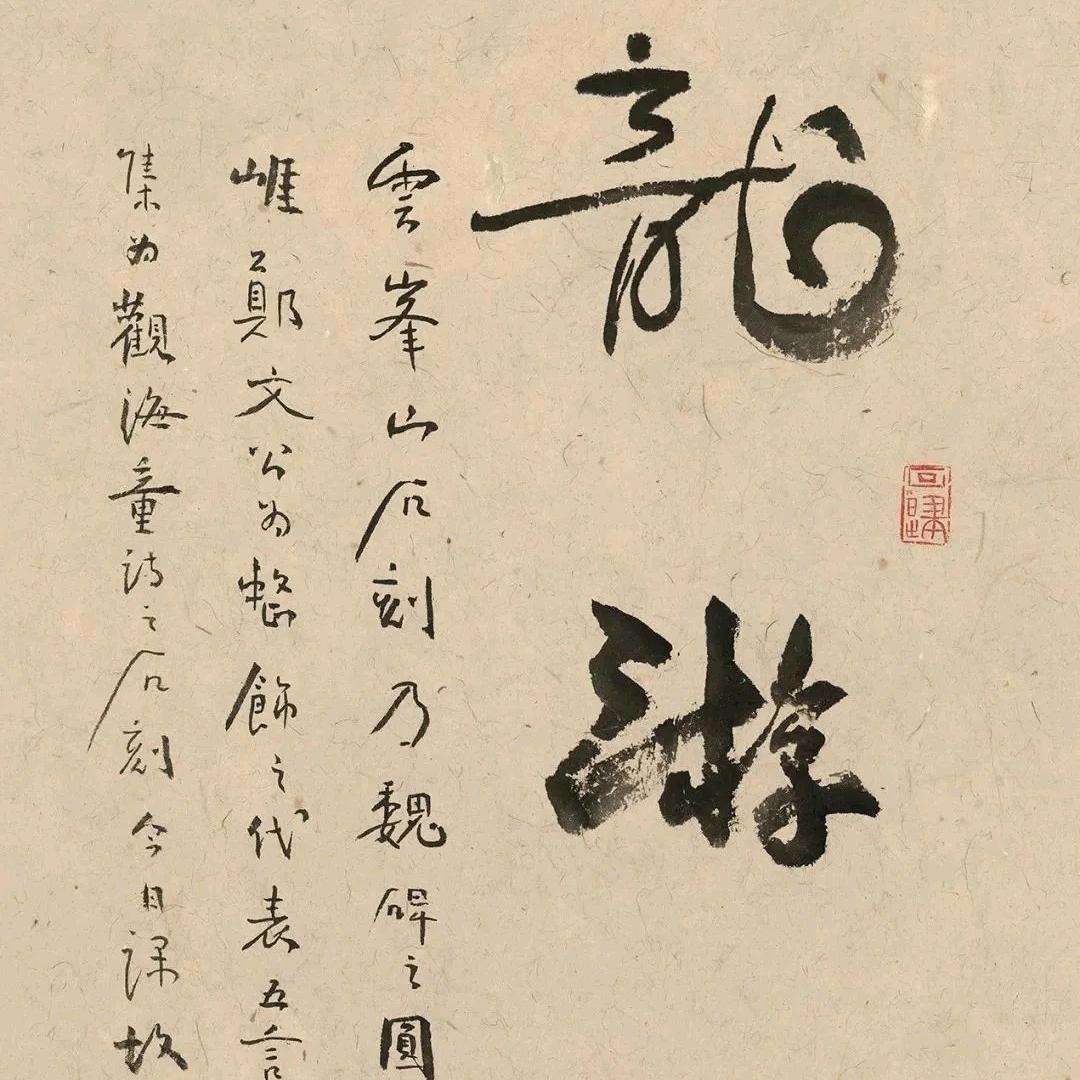 龍游
雲峯山石刻乃魏碑之圓
唯鄭文公为整飾之代表五言
集为觀海童詩之石刻今日課故